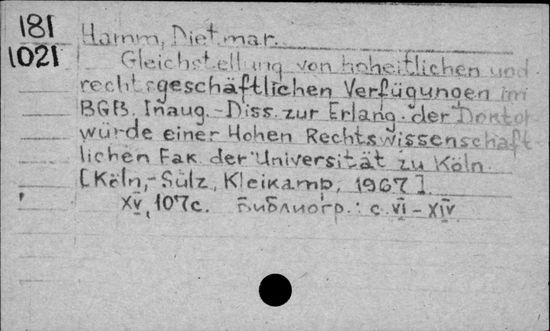 181
1021
Hamm, Dietmar.
Gleichstellung von hoheitlichen und
rechtsgeschäftlichen Verfügungen im
BGB, Inaug.-Diss. zur Erlang. der Doktor
würde einer Hohen Rechtswissenschaft-
lichen Fak. der Universität zu Köln.
[Köln,-Sülz, Kleikamp, 1967].
XV, 107c. Библиогр.: с. VI-XIV